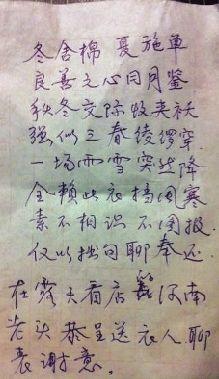 冬舍棉 夏施单
良善之心同月鉴
秋冬交际收夹袄
强似三春绫缪穿
一场雨雪突然降
全赖此衣挡风寒
素不相识不图报
仅以拙句聊奉还
在露天看店 河南
老头恭呈送衣人聊
表谢意。